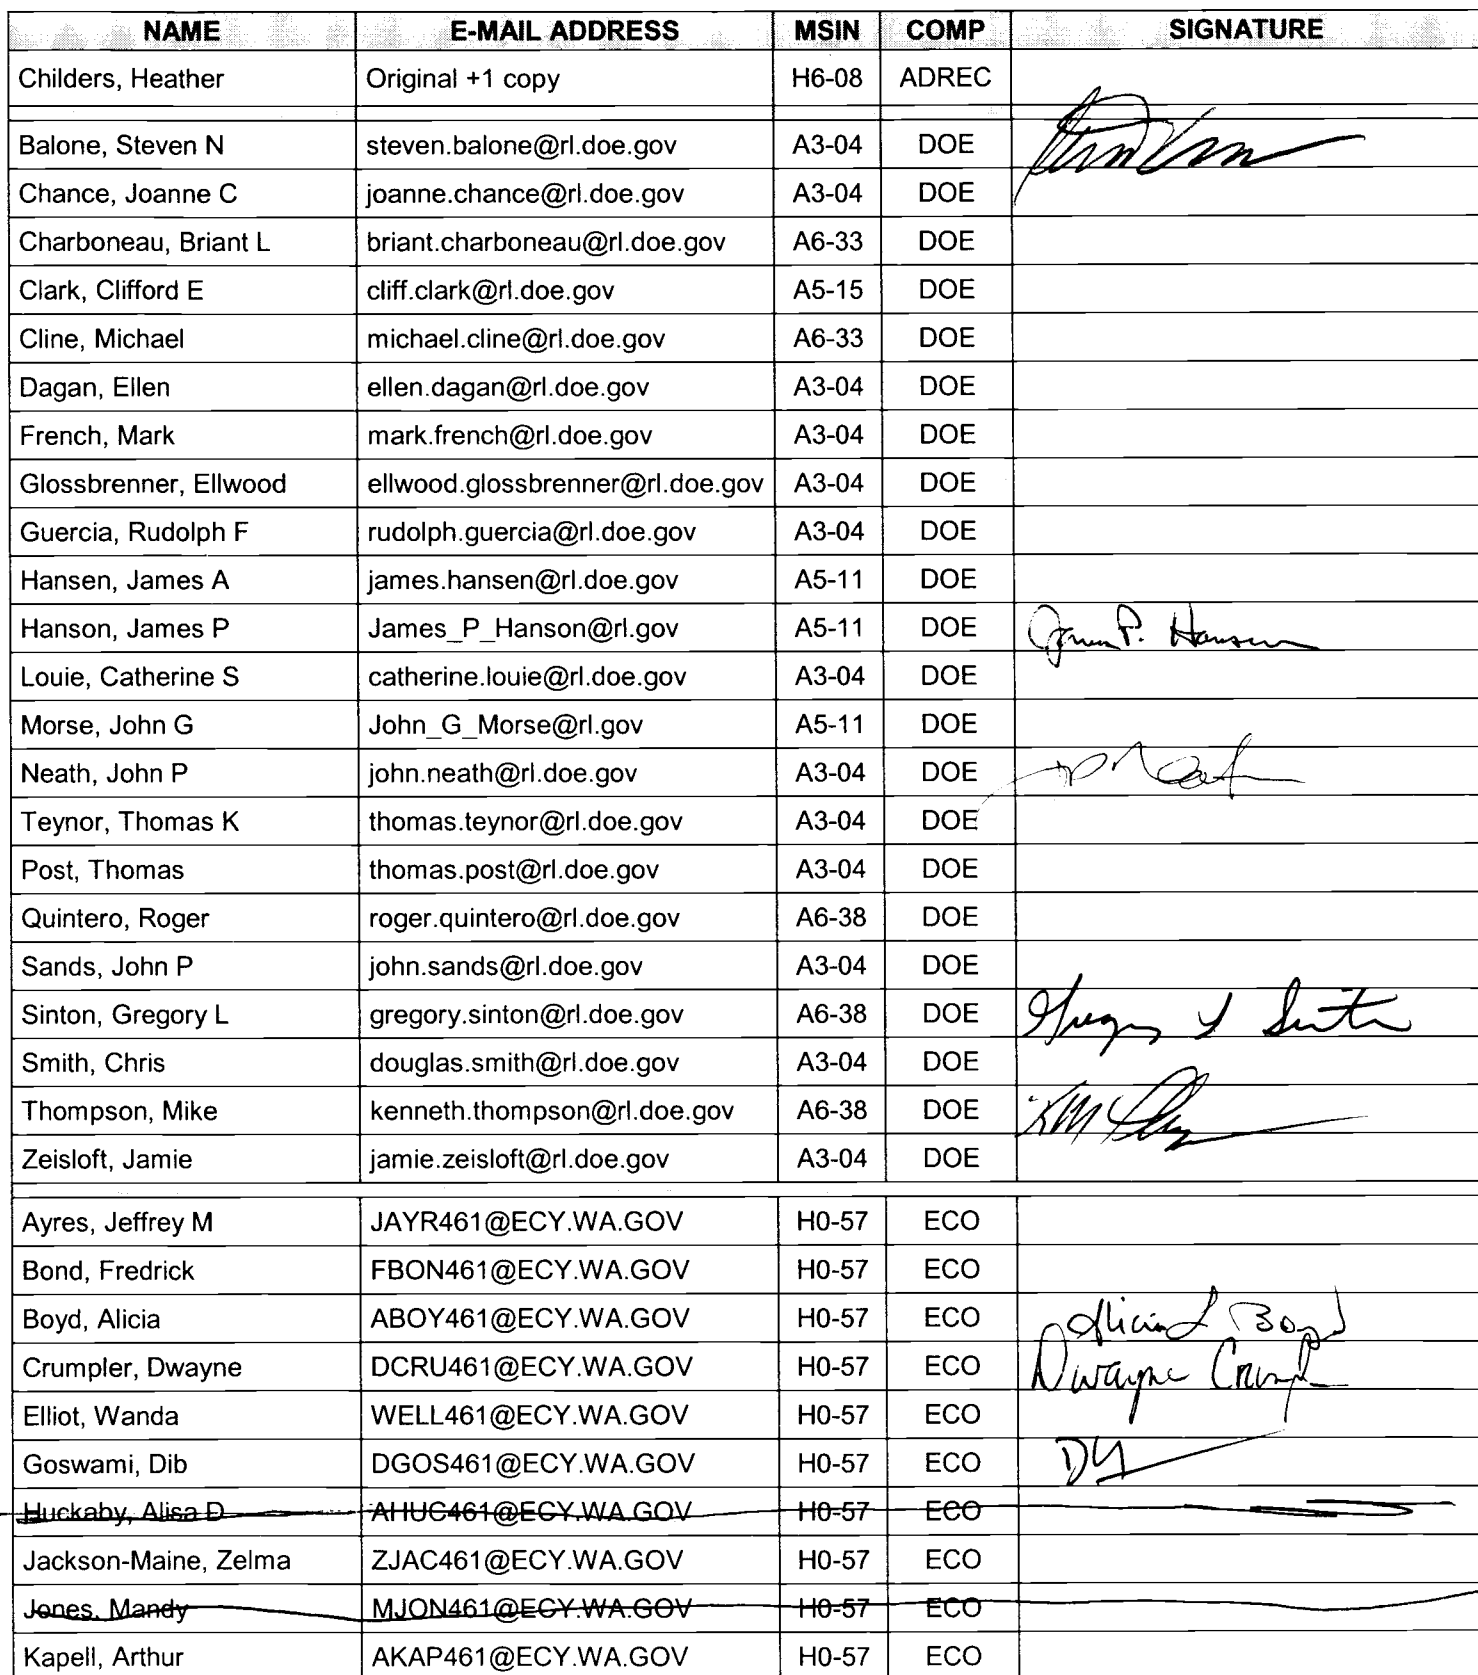 NAME E-MAIL ADDRESS MSIN COMP SIGNATURE
Childers, Heather Original +1 copy H6-08 ADREC
Balone, Steven N steven.balone@rl.doe.gov A3-04 DOE
Chance, Joanne C joanne.chance@rl.doe.gov A3-04 DOE
Charboneau, Briant L briant.charboneau@rl.doe.gov A6-33 DOE
Clark, Clifford E cliff.clark@rl.doe.gov A5-15 DOE
Cline, Michael michael.cline@rl.doe.gov A6-33 DOE
Dagan, Ellen ellen.dagan@rl.doe.gov A3-04 DOE
French, Mark mark.french@rl.doe.gov A3-04 DOE
Glossbrenner, Ellwood ellwood.glossbrenner@rl.doe.gov A3-04 DOE
Guercia, Rudolph F rudolph.guercia@rl.doe.gov A3-04 DOE
Hansen, James A james.hansen@rl.doe.gov A5-11 DOE
Hanson, James P James_P_Hanson@rl.gov A5-11 DOE James P. Hanson
Louie, Catherine S catherine.louie@rl.doe.gov A3-04 DOE
Morse, John G John_G_Morse@rl.gov A5-11 DOE
Neath, John P john.neath@rl.doe.gov A3-04 DOE
Teynor, Thomas K thomas.teynor@rl.doe.gov A3-04 DOE
Post, Thomas thomas.post@rl.doe.gov A3-04 DOE
Quintero, Roger roger.quintero@rl.doe.gov A6-38 DOE
Sands, John P john.sands@rl.doe.gov A3-04 DOE
Sinton, Gregory L gregory.sinton@rl.doe.gov A6-38 DOE Gregory L Sinton
Smith, Chris douglas.smith@rl.doe.gov A3-04 DOE
Thompson, Mike kenneth.thompson@rl.doe.gov A6-38 DOE
Zeisloft, Jamie jamie.zeisloft@rl.doe.gov A3-04 DOE
Ayres, Jeffrey M JAYR461@ECY.WA.GOV H0-57 ECO
Bond, Fredrick FBON461@ECY.WA.GOV H0-57 ECO
Boyd, Alicia ABOY461@ECY.WA.GOV H0-57 ECO Alicia L Boyd
Crumpler, Dwayne DCRU461@ECY.WA.GOV H0-57 ECO Dwayne Crumpler
Elliot, Wanda WELL461@ECY.WA.GOV H0-57 ECO
Goswami, Dib DGOS461@ECY.WA.GOV H0-57 ECO
Huckaby, Alisa D AHUC461@ECY.WA.GOV H0-57 ECO
Jackson-Maine, Zelma ZJAC461@ECY.WA.GOV H0-57 ECO
Jones, Mandy MJON461@ECY.WA.GOV H0-57 ECO
Kapell, Arthur AKAP461@ECY.WA.GOV H0-57 ECO